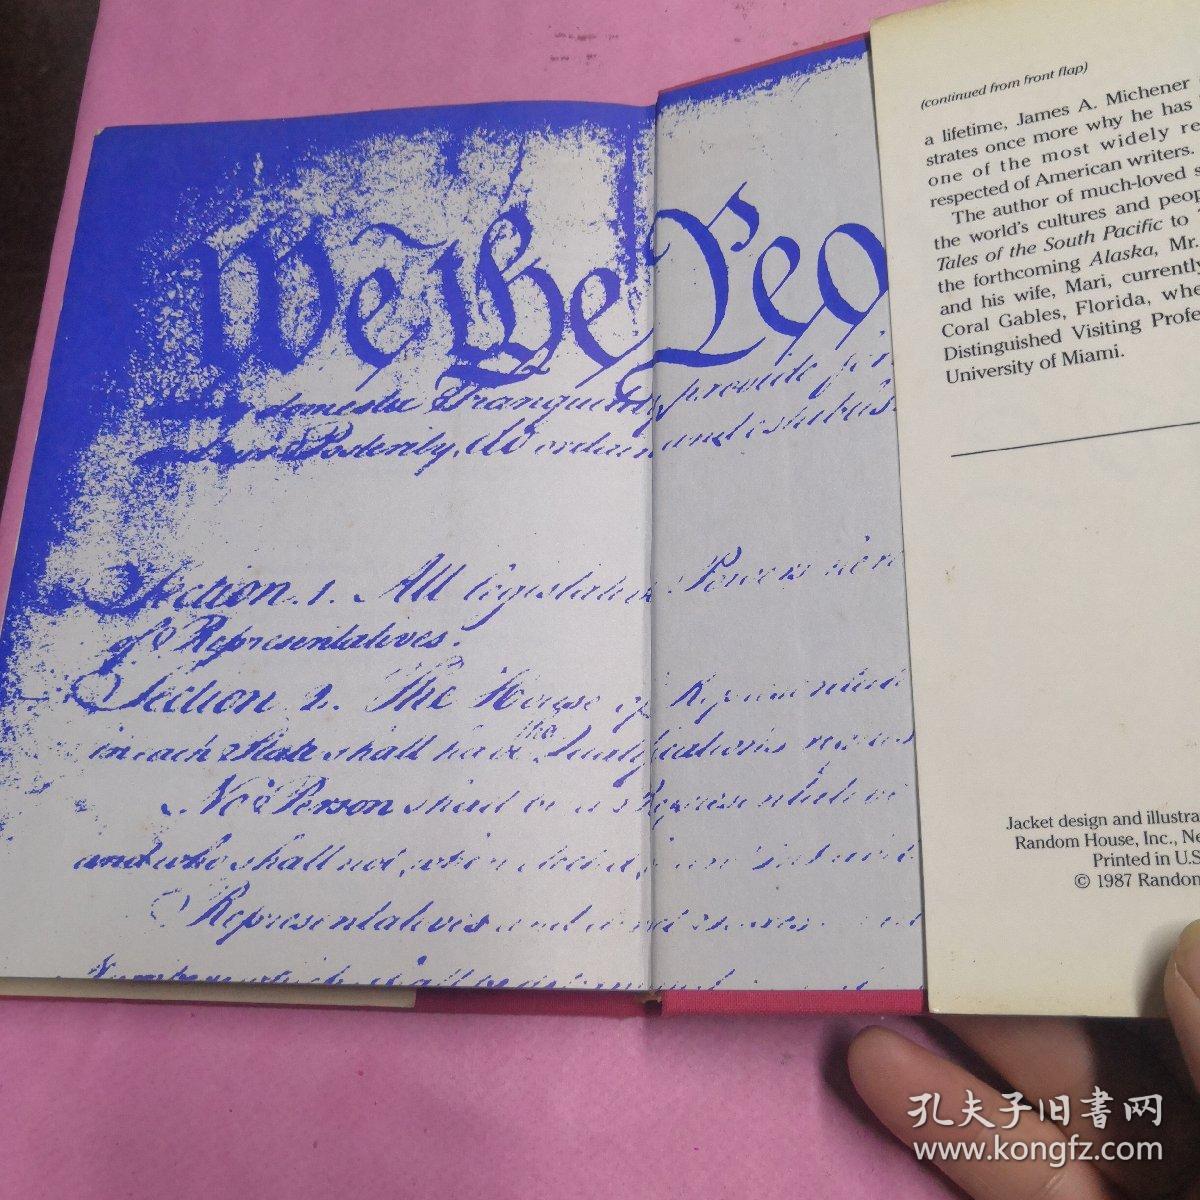 We the Peo
domestic Tranquility, provide for
our Posterity, do ordain and establish
Section. 1. All legislative Powers herein
of Representatives.
Section. 2. The House of Representatives
in each State shall have the Qualifications requis
No Person shall be a Representative
and who shall not, when elected, be an Inhabit
Representatives and direct
Number which shall be determined
(continued from front flap)
a lifetime, James A. Michener
strates once more why he has
one of the most widely re
respected of American writers.
The author of much-loved s
the world's cultures and peop
Tales of the South Pacific to
the forthcoming Alaska, Mr.
and his wife, Mari, currently
Coral Gables, Florida, whe
Distinguished Visiting Profe
University of Miami.
Jacket design and illustra
Random House, Inc., Ne
Printed in U.S
© 1987 Random
孔夫子旧書网
www.kongfz.com